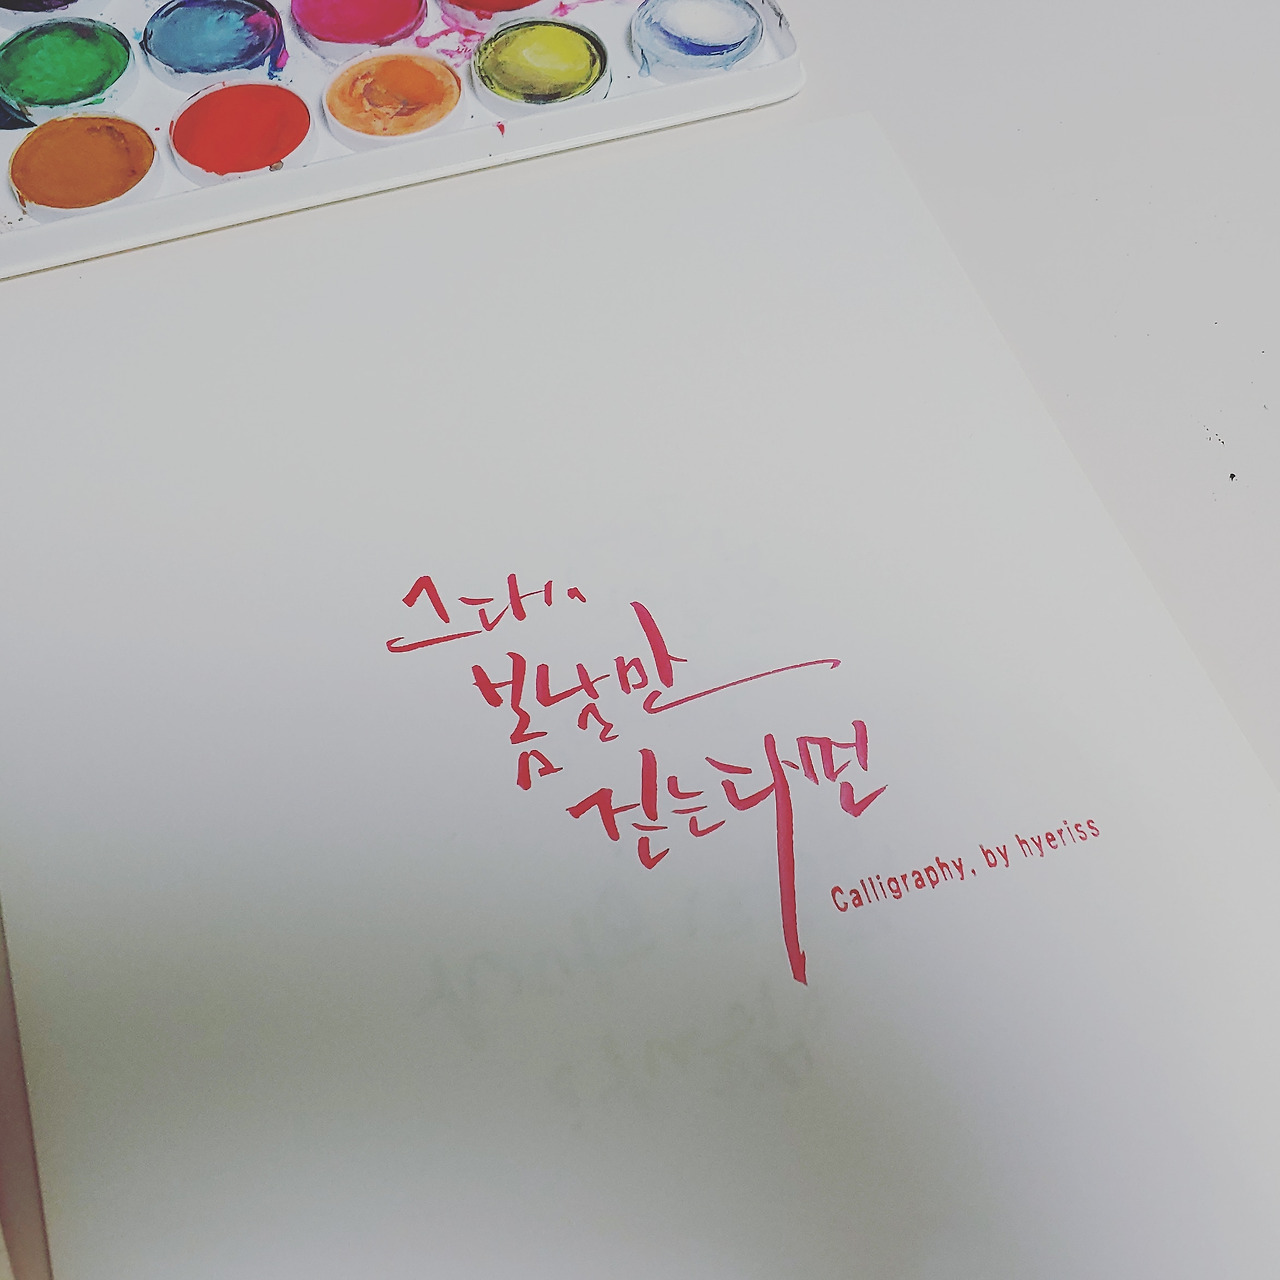 그대
봄날만
걷는다면
Calligraphy, by hyeriss